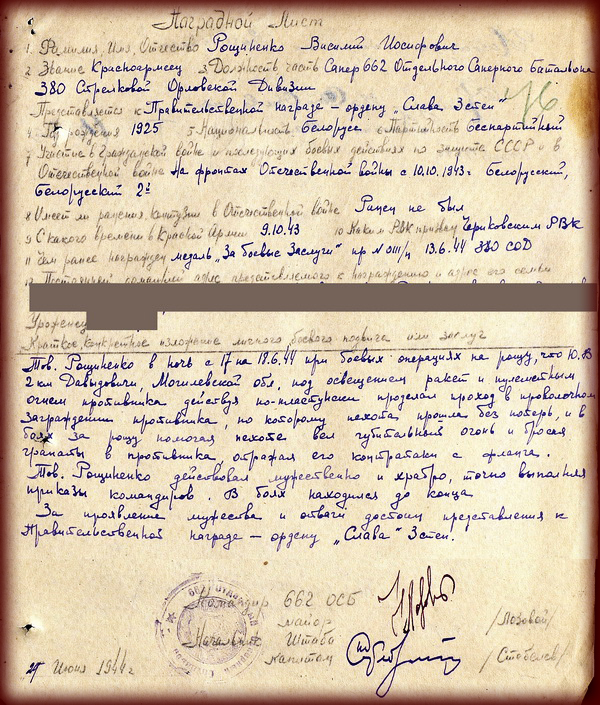 Наградной Лист
1. Фамилия, Имя, Отчество Рощиненко Василий Иосифович
2 Звание Красноармеец 3. Должность, часть Сапер 662 Отдельного Саперного Баталиона
380 Стрелковой Орловской Дивизии
Представляется к Правительственной награде – ордену „Слава 3 степ"
4 Год рождения 1925 5 Национальность Белорус 6 Партийность Беспартийный
7 Участие в Гражданской войне и последующих боевых действиях по защите СССР и в
Отечественной войне На фронтах Отечественной войны с 10.10.1943г Белорусский,
Белорусский 2й
8 Имеет ли ранения, контузии в Отечественной войне Ранен не был
9 С какого времени в Красной Армии 9.10.43 10 Каким РВК призван Чериковским РВК
11 Чем ранее награжден медаль „За боевые Заслуги" пр № 011/н 13.6.44 380 СОД
12 Постоянный домашний адрес представляемого к награждению и адрес его семьи
Уроженец
Краткое, конкретное изложение личного боевого подвига или заслуг
Тов. Рощиненко в ночь с 17 на 18.6.44 при боевых операциях на рощу, что Ю.В
2 км Давыдовичи, Могилевской обл, под освещением ракет и пулеметным
огнем противника действуя по-пластунски проделал проход в проволочном
заграждении противника, по которому пехота прошла без потерь, и в
боях за рощу помогая пехоте вел губительный огонь и бросая
гранаты в противника, отражая его контратаки с фланга.
Тов. Рощиненко действовал мужественно и храбро, точно выполняя
приказы командиров. В боях находился до конца
За проявление мужества и отваги достоин представления к
Правительственной награде – ордену „Слава" 3 степ.
Командир 662 ОСБ
майор /Лозовой/
Начальник Штаба
капитан
Июня 1944 г